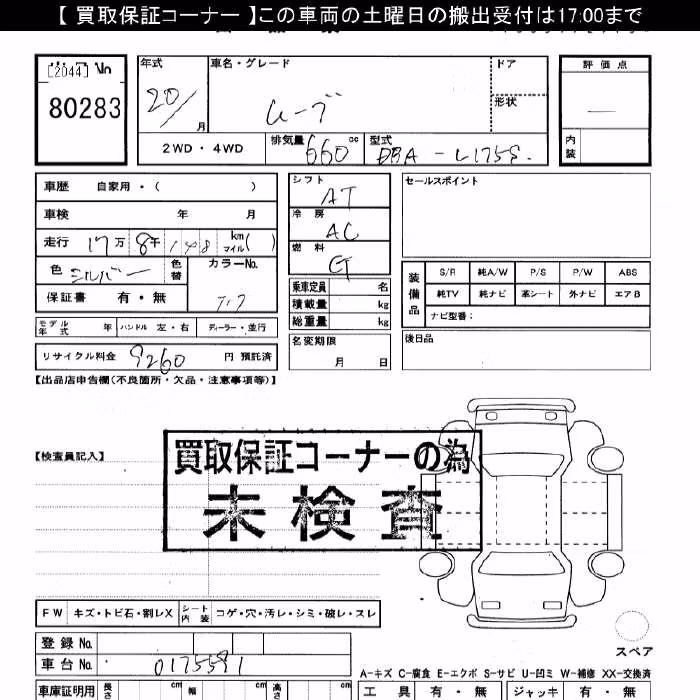 【 買取保証コーナー 】この車両の土曜日の搬出受付は17:00まで
[2044] No
80283
年式 車名・グレード ドア 評価点
20/ 月 ムーブ 形状 —
2WD・4WD 排気量 660 cc 型式 DBA-L175S. 内装
車歴 自家用・( )
車検 年 月
走行 17万 8千 148 km マイル ( )
色 シルバー 色替 カラーNo.
保証書 有・無
モデル年式 年 ハンドル 左・右 ディーラー・並行
リサイクル料金 9260 円 預託済
シフト AT
冷房 AC
燃料 G
乗車定員 名
積載量 kg
総重量 kg
名変期限
月 日
セールスポイント
装備品 S/R 純A/W P/S P/W ABS
純TV 純ナビ 革シート 外ナビ エアB
ナビ型番:
後日品
【出品店申告欄(不良箇所・欠品・注意事項等)】
【検査員記入】
買取保証コーナーの為
未検査
FW キズ・トビ石・割レX シート内装 コゲ・穴・汚レ・シミ・破レ・スレ
スペア
登録 No.
車台 No. 0175591
A-キズ C-腐食 E-エクボ S-サビ U-凹ミ W-補修 XX-交換済
車庫証明用 長さ cm 幅 cm 高さ cm 工具 有・無 ジャッキ 有・無